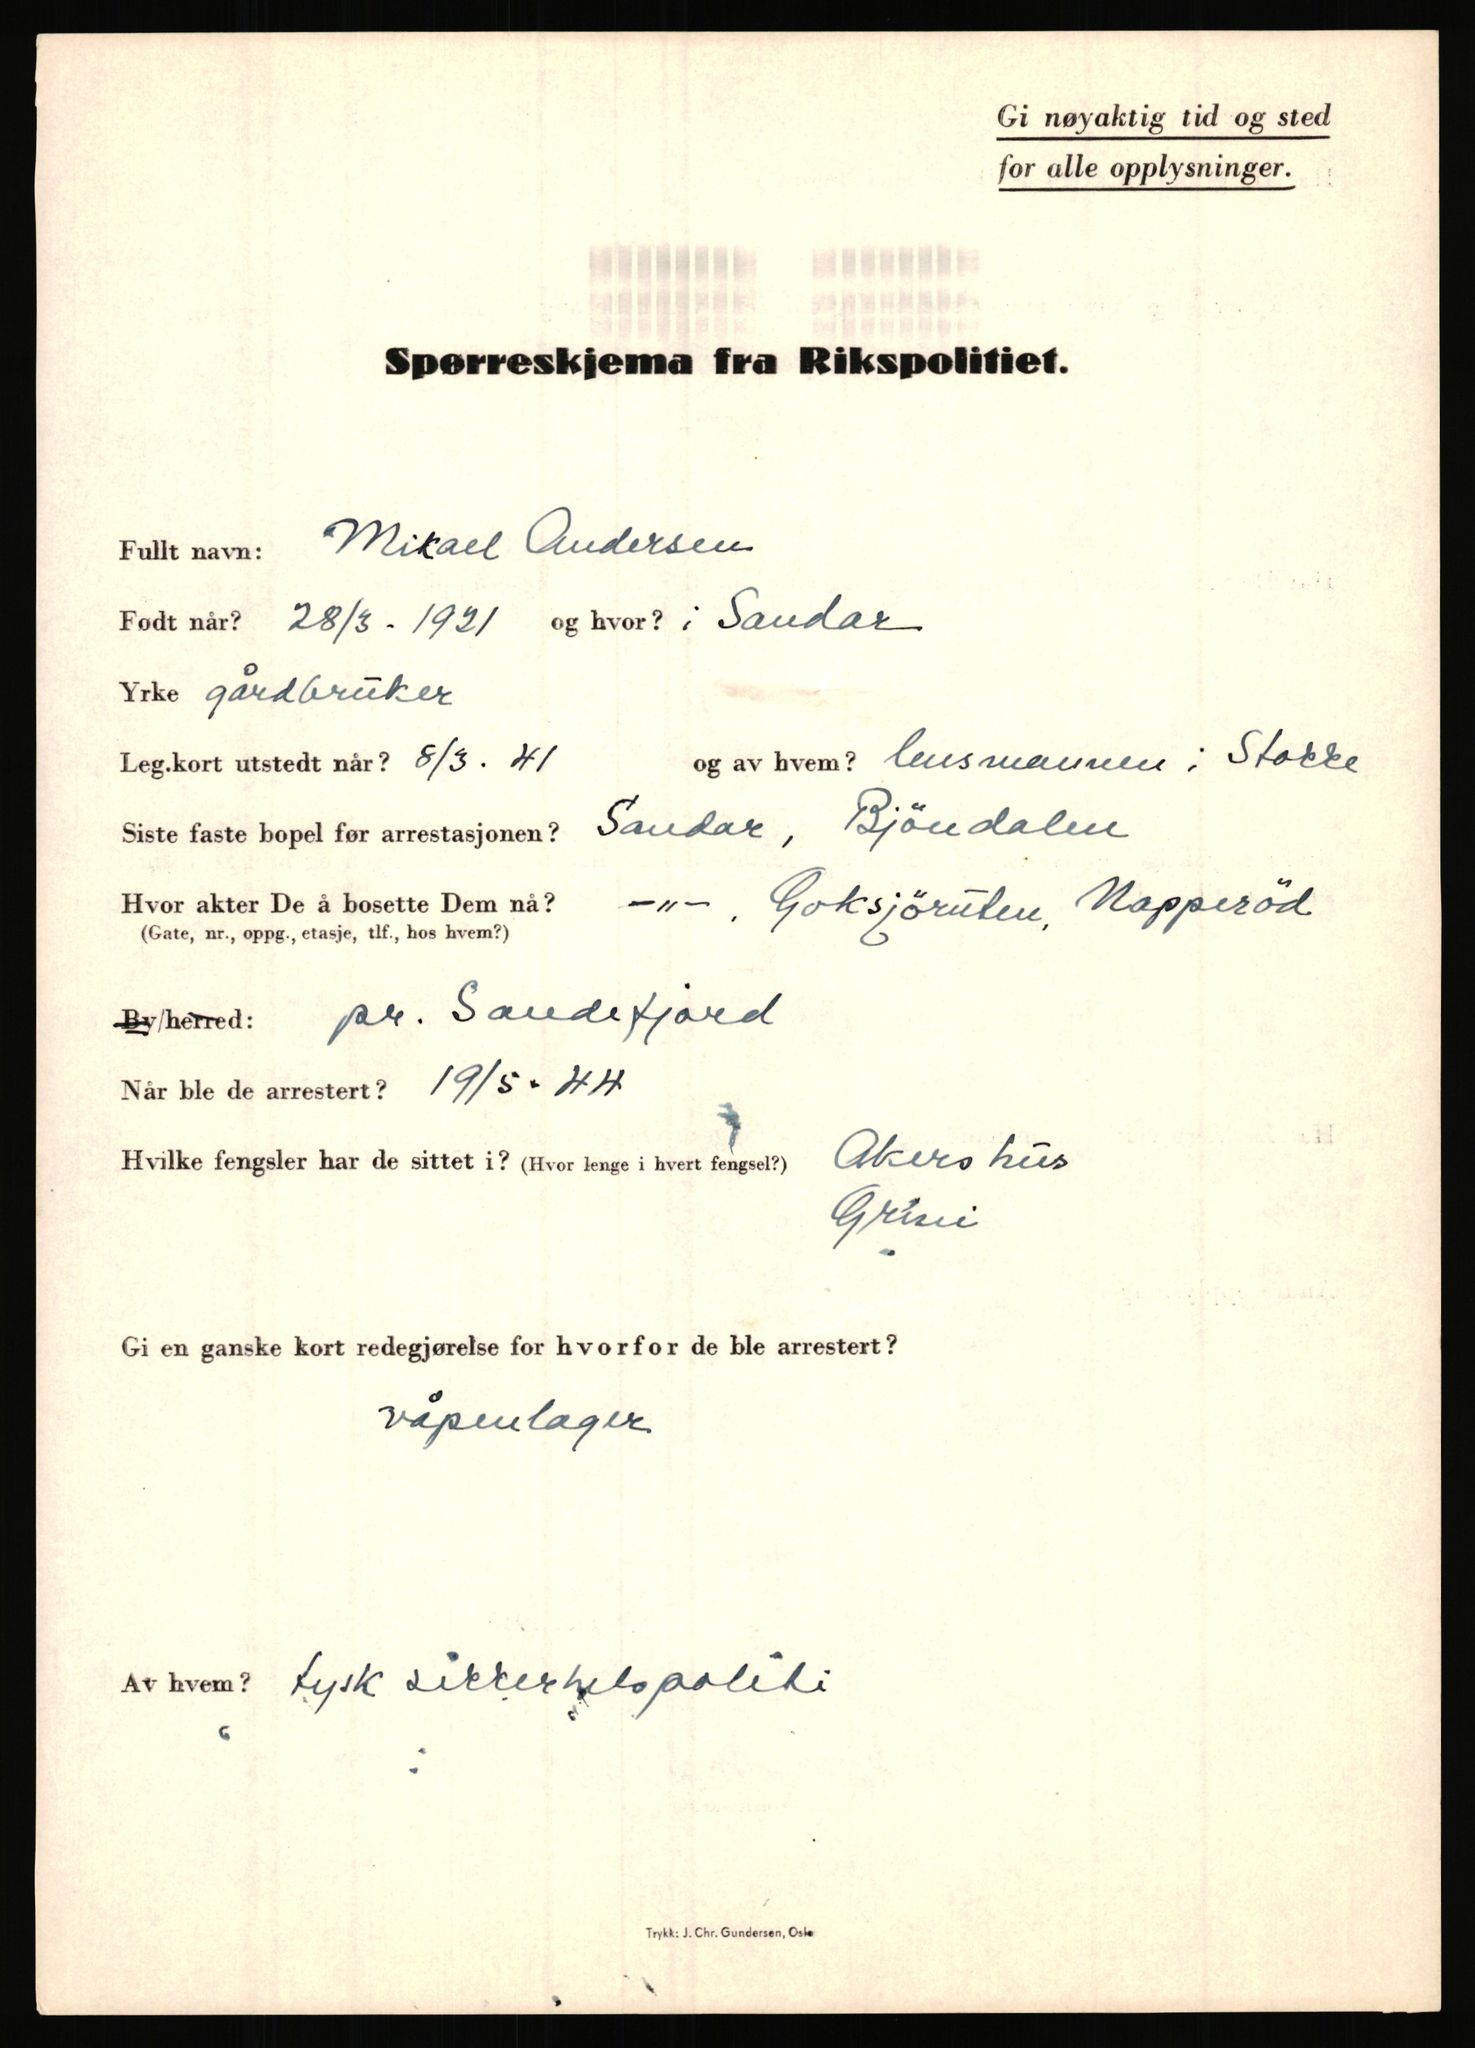 Gi nøyaktig tid og sted
for alle opplysninger.
Spørreskjema fra Rikspolitiet.
Fullt navn: Mikael Andersen
Født når? 28/3 - 1921 og hvor? i Sandar
Yrke gårdbruker
Leg.kort utstedt når? 8/3 . 41 og av hvem? lensmannen i Stokke
Siste faste bopel før arrestasjonen? Sandar, Bjöndalen
Hvor akter De å bosette Dem nå? —„— . Goksjöruten, Napperöd
(Gate, nr., oppg., etasje, tlf., hos hvem?)
By/herred: pr. Sandefjord
Når ble de arrestert? 19/5 . 44
Hvilke fengsler har de sittet i? (Hvor lenge i hvert fengsel?) Akershus
Grini
Gi en ganske kort redegjørelse for hvorfor de ble arrestert?
våpenlager
Av hvem? tysk sikkerhetspoliti
Trykk: J. Chr. Gundersen, Oslo